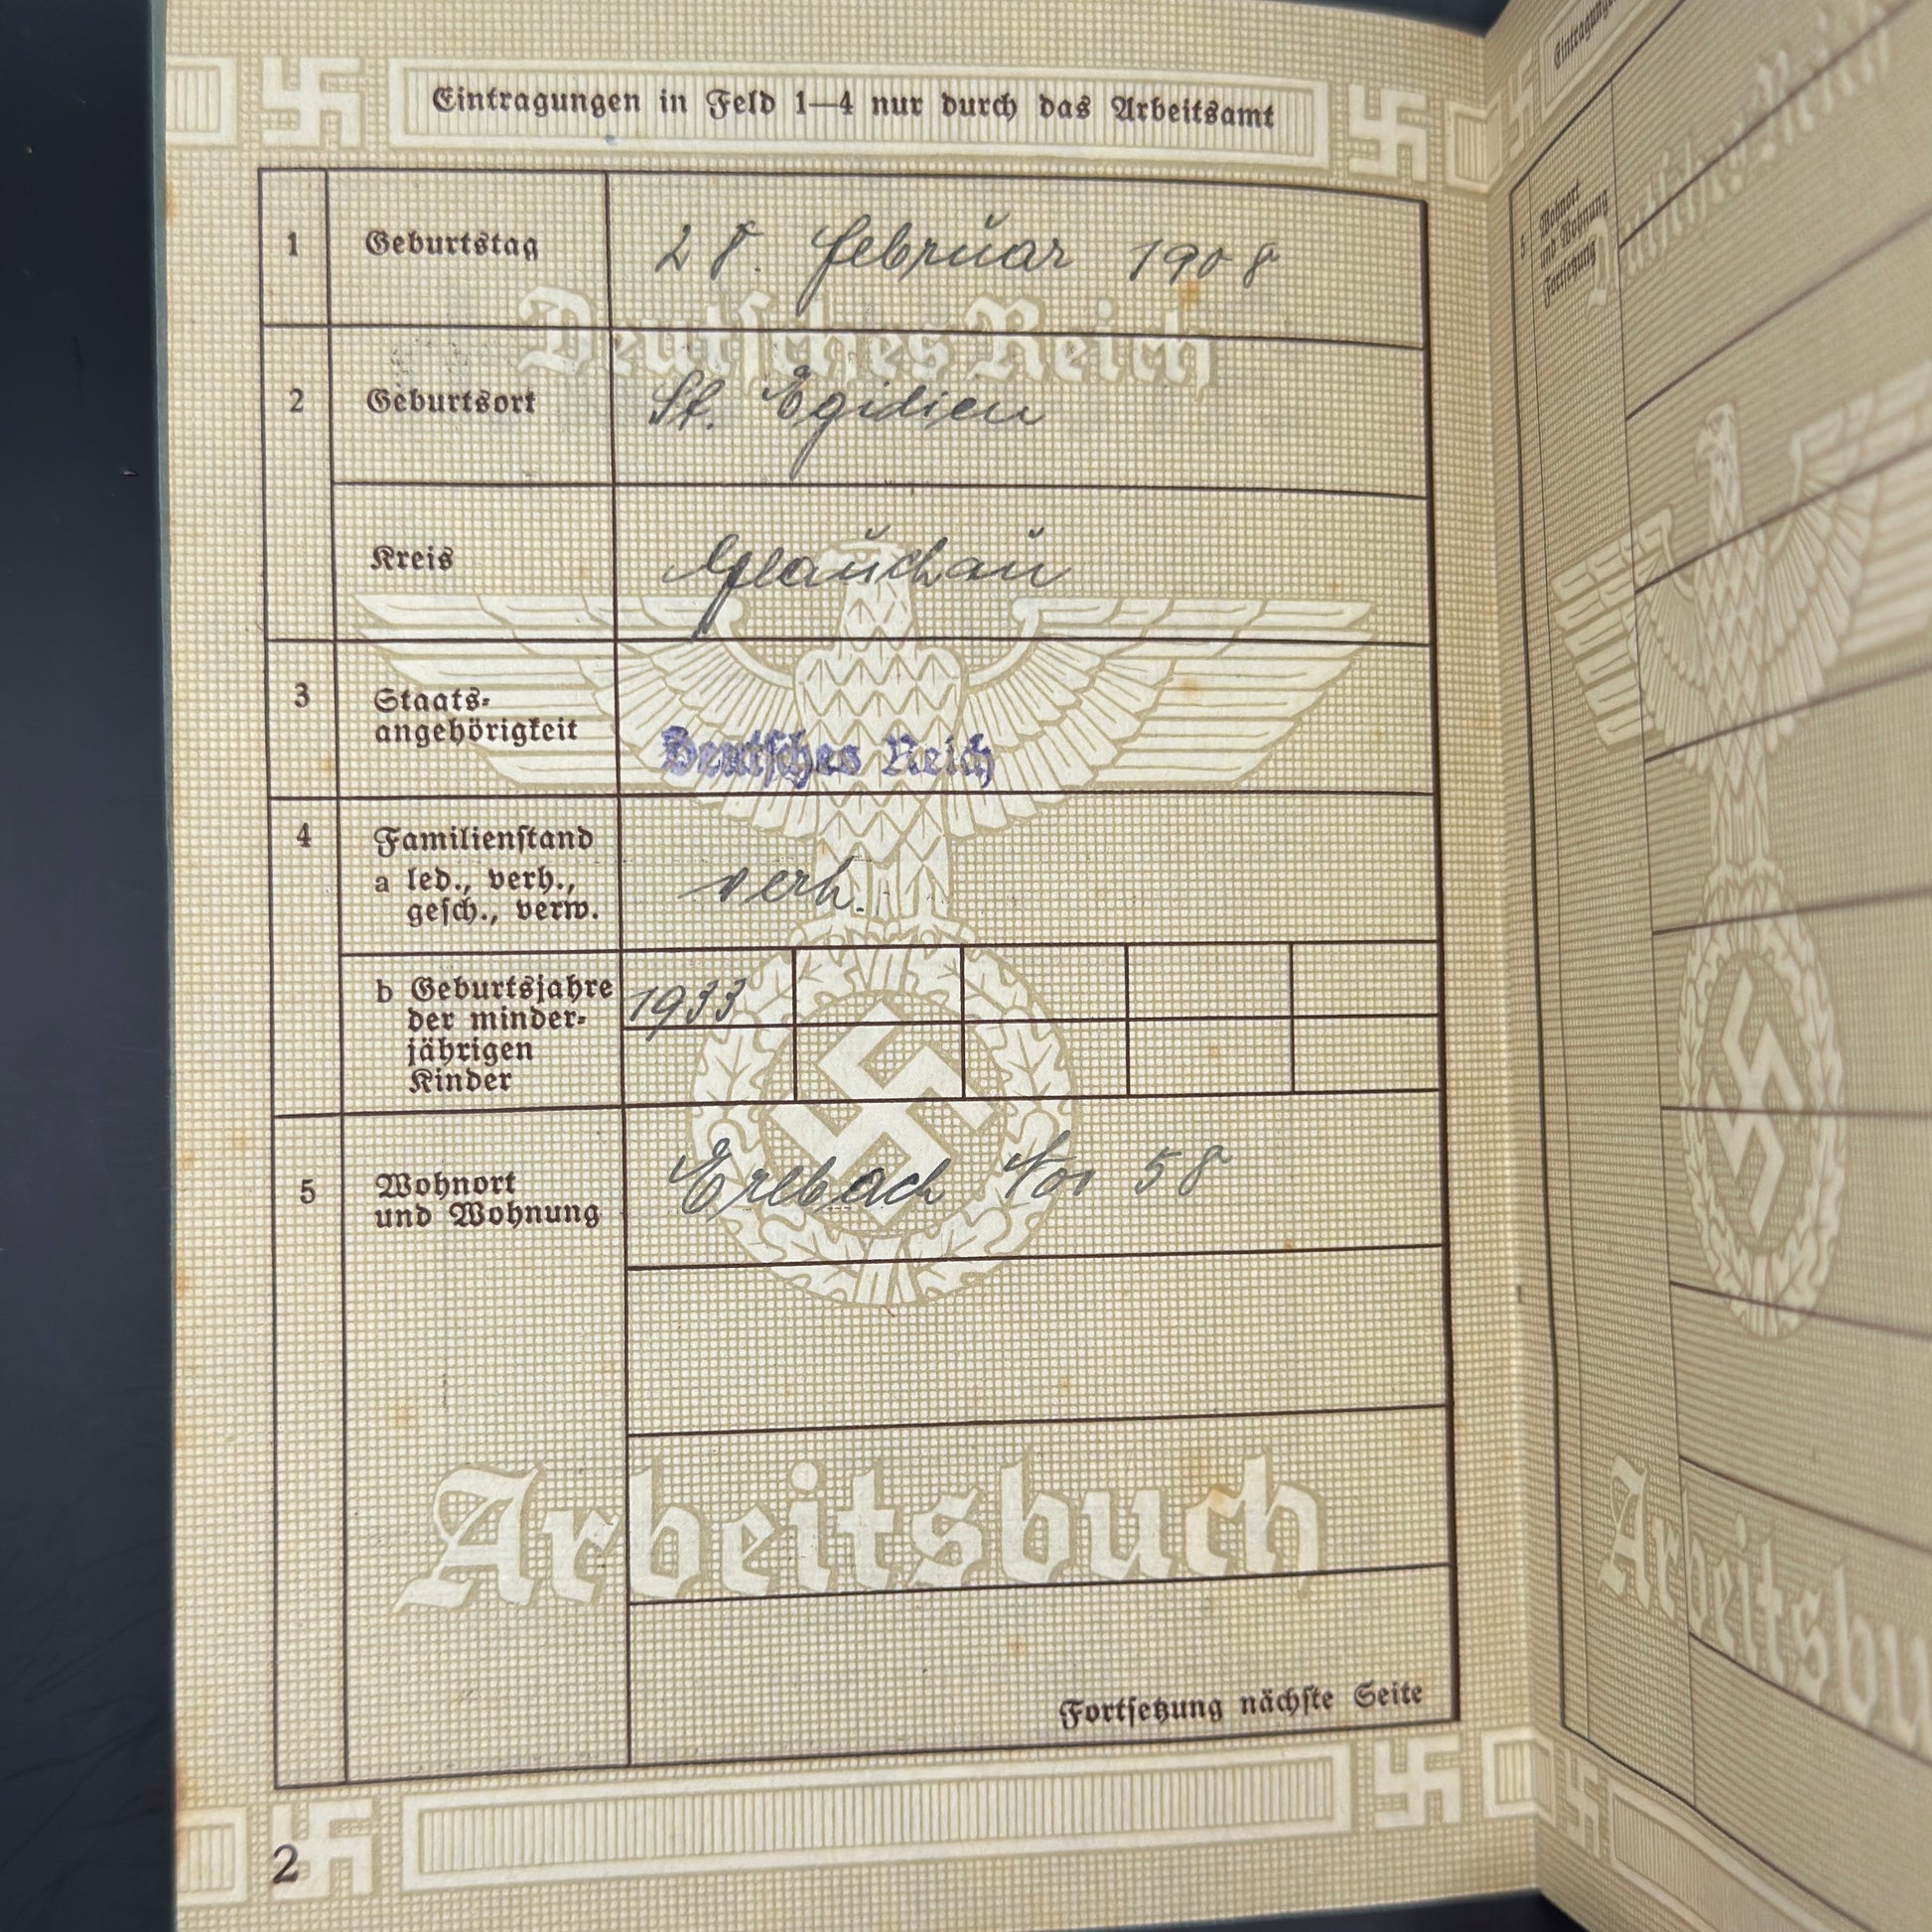 Eintragungen in Feld 1—4 nur durch das Arbeitsamt
1 Geburtstag 28. Februar 1908
Deutsches Reich
2 Geburtsort St. Egidien
Kreis Glauchau
3 Staats-
angehörigkeit Deutsches Reich
4 Familienstand
a led., verh.,
gesch., verw. verh.
b Geburtsjahre 1933
der minder-
jährigen
Kinder
5 Wohnort
und Wohnung Erlbach No 58
Arbeitsbuch
Fortsetzung nächste Seite
2
Eintragungen
5 Wohnort
und Wohnung
Fortsetzung
Deutsches Reich
Arbeitsbu